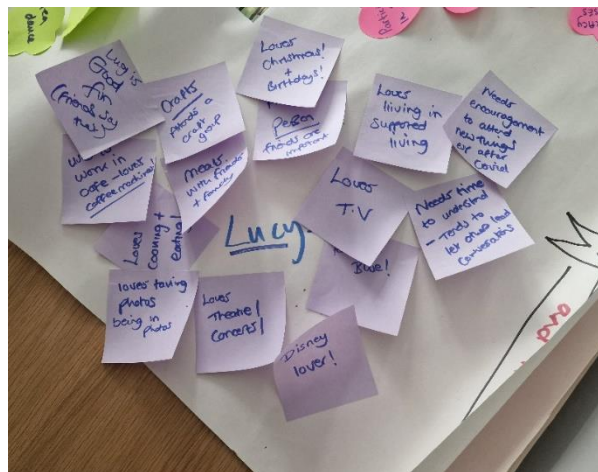 Lucy is
Good
Fun
Friends say
they
Crafts
Attends a
craft
group
Loves
Christmas!
+
Birthdays!
Person
friends are
important
Loves
living in
Supported
living
Needs
encouragement
to attend
new things
after
Covid
work in
cafe - loves
coffee machines!
Meals
with friends
+ family
Loves
T.V
Needs time
to understand
- Tends to
let others lead
conversations
Loves
cooking +
eating!
Lucy
Blue!
loves taking
photos
being in photos
Loves
Theatre!
Concerts!
Disney
lover!
pro